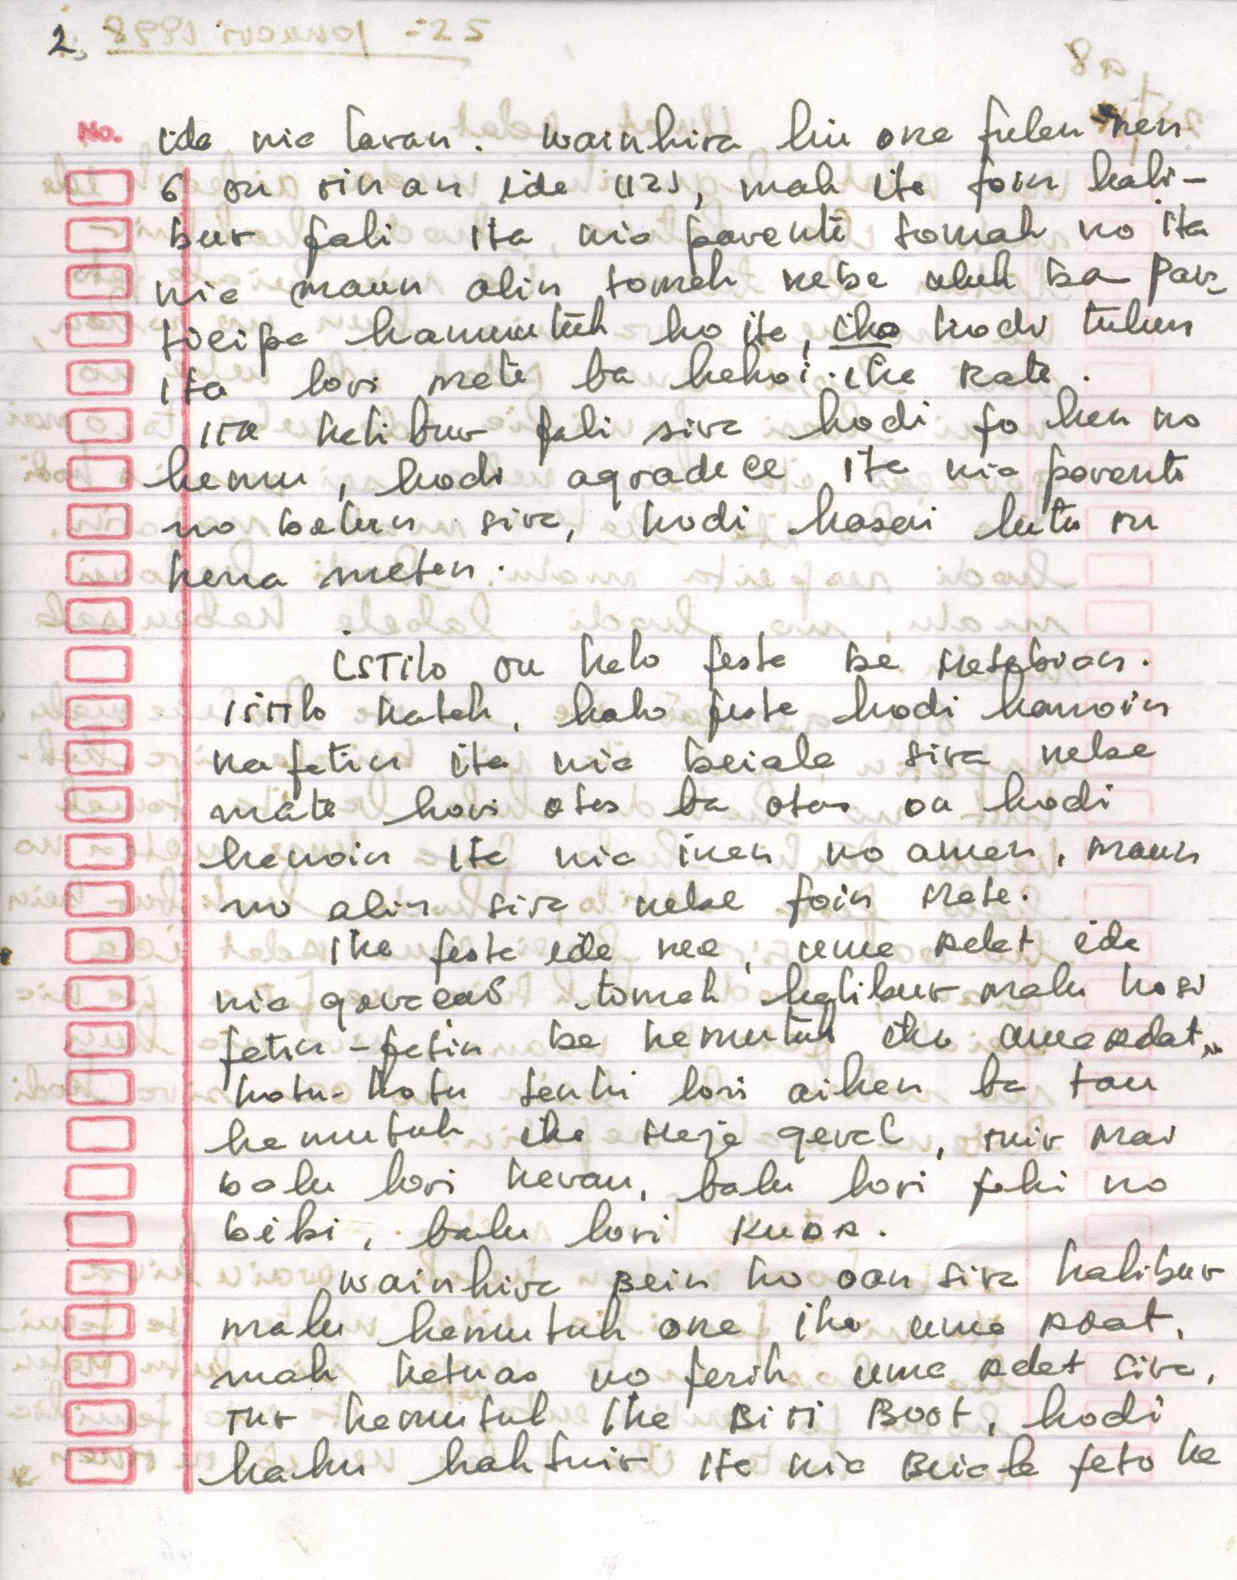 2.
No. ida nia laran. wainhira liu ona fulan nen
6 ou tinan ida (12), mak ita foin hali-
bur fali ita nia parenti tomak no ita
nia maun alin tomak nebe uluk ba par-
ticipa hamutuk ho ita, iha hodi tulun
ita lori mate ba hakoi iha rate.
ita halibur fali sira hodi fo han no
hemu, hodi agradece ita nia parenti
no belun sira, hodi hasai lutu ou
hena metan.
ISTilo ou halo festa ba Matebian.
istilo katak, halo festa hodi hanoin
nafatin ita nia beiala sira nebe
mate hori otas ba otas ou hodi
hanoin ita nia inan no aman, maun
no alin sira nebe foin mate.
iha festa ida nee, uma adat ida
nia geracaõ tomak halibur malu hosi
fatin-fatin ba hamutuk iha uma adat,
hotu-hotu tenki lori aihan ba tau
hamutuk iha meja geral, mir mai
balu lori karau, balu lori fahi no
bibi, balu lori KUDA.
wainhira Bein ho oan sira halibur
malu hamutuk ona iha uma adat,
mak katuas no ferik uma adat sira,
tur hamutuk iha BiTi Boot, hodi
hahu hahtuir ita nia Beiala feto ka